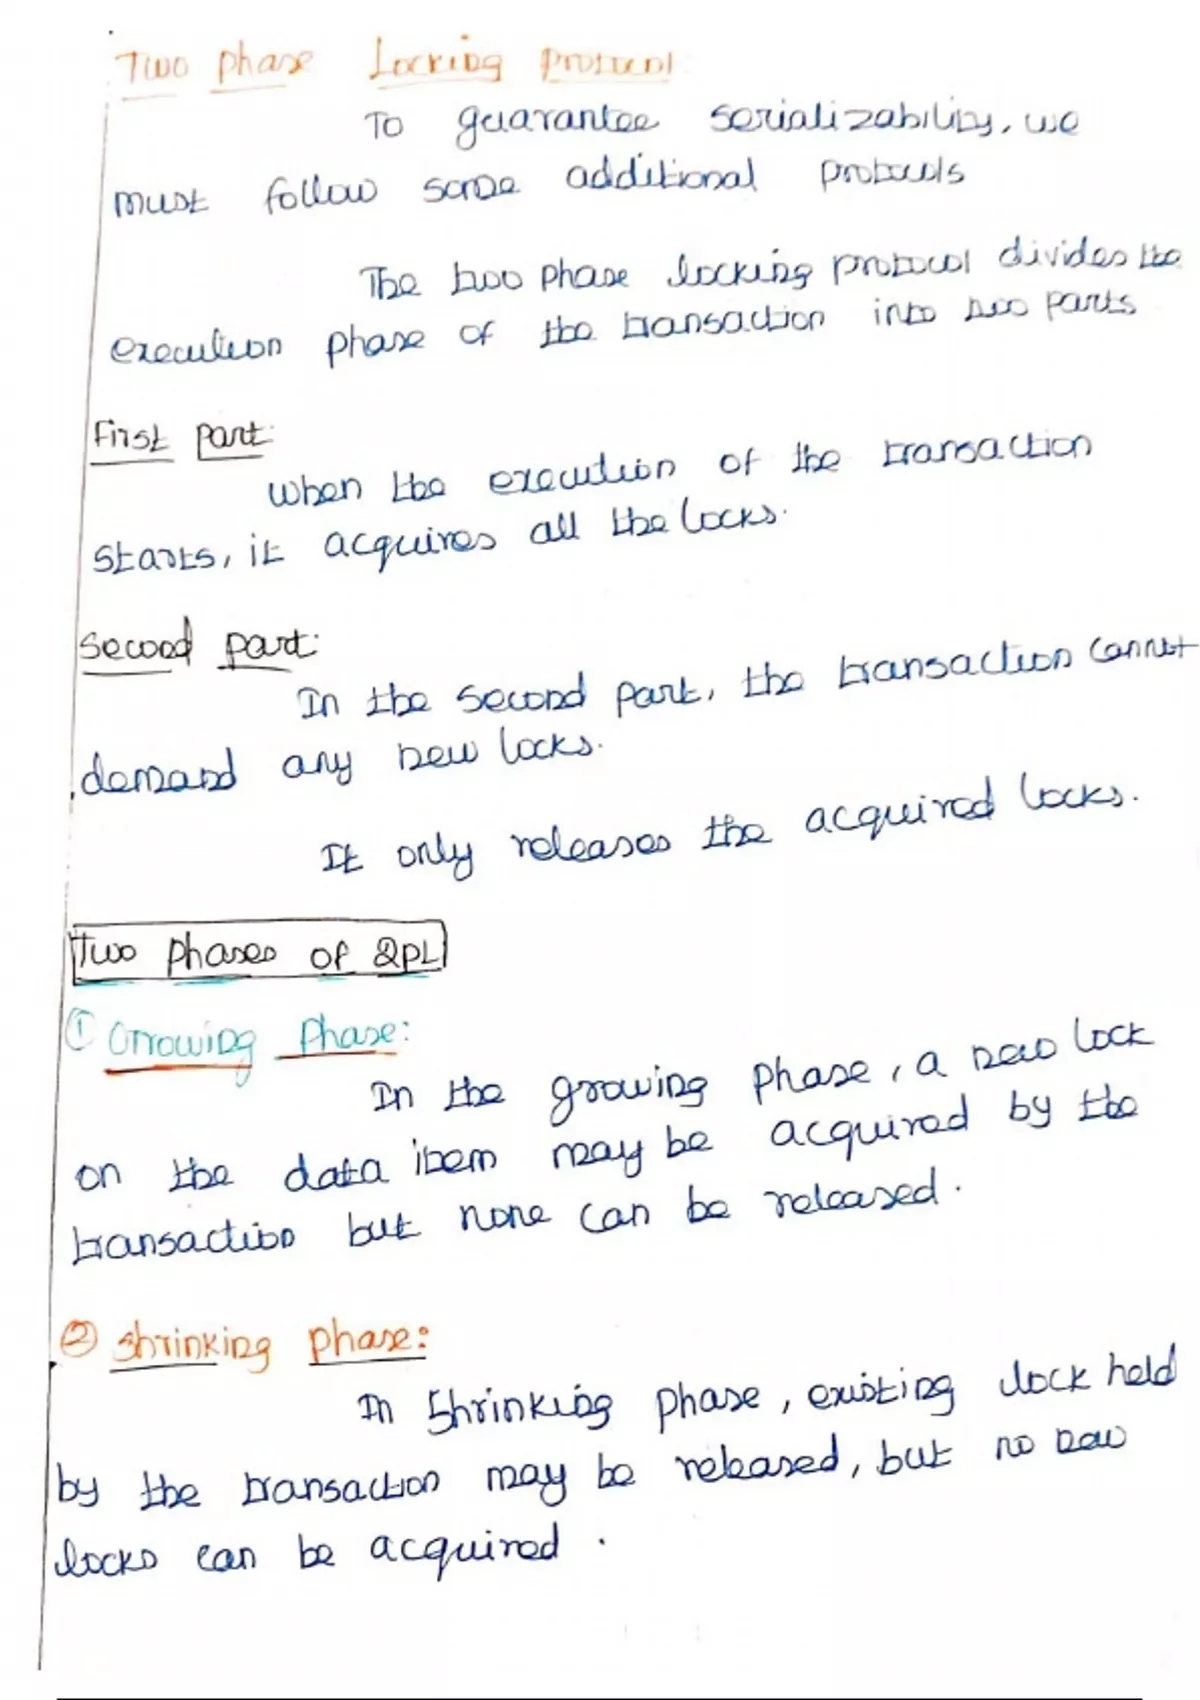 Two phase Locking protocol
To guarantee serializability, we
must follow some additional protocols
The two phase locking protocol divides the
execution phase of the transaction into two parts
First part:
When the execution of the transaction
starts, it acquires all the locks.
Second part:
In the second part, the transaction cannot
demand any new locks.
It only releases the acquired locks.
Two phases of 2PL
① Growing Phase:
In the growing phase, a new lock
on the data item may be acquired by the
transaction but none can be released.
② Shrinking phase:
In Shrinking phase, existing lock held
by the transaction may be released, but no new
locks can be acquired.